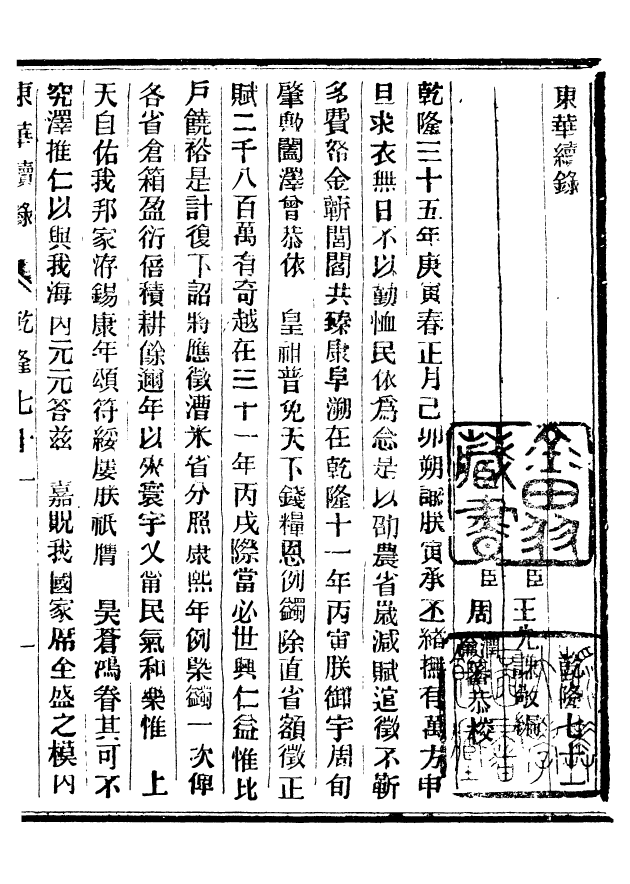 東華續錄
乾隆七十一
臣王先謙敬編
臣周潤蕃恭校
乾隆三十五年庚寅春正月己卯朔諭朕寅承丕緒撫有萬方申
旦求衣無日不以勤恤民依爲念是以劭農省歲減賦逭徵不靳
多費帑金蘄閭閻共臻康阜溯在乾隆十一年丙寅朕御宇周旬
肇勲闓澤曾恭依 皇祖普免天下錢糧恩例蠲除直省額徵正
賦二千八百萬有奇越在三十一年丙戌際當必世興仁益惟比
戶饒裕是計復下詔將應徵漕米省分照康熙年例槩蠲一次俾
各省倉箱盈衍倍積耕餘邇年以來寰宇乂甯民氣和樂惟 上
天自佑我邦家洊錫康年頌符綏屢朕祇膺 昊蒼鴻眷其可不
究澤推仁以與我海內元元答茲 嘉貺我國家席全盛之模內
東華續錄 乾隆七十一 一